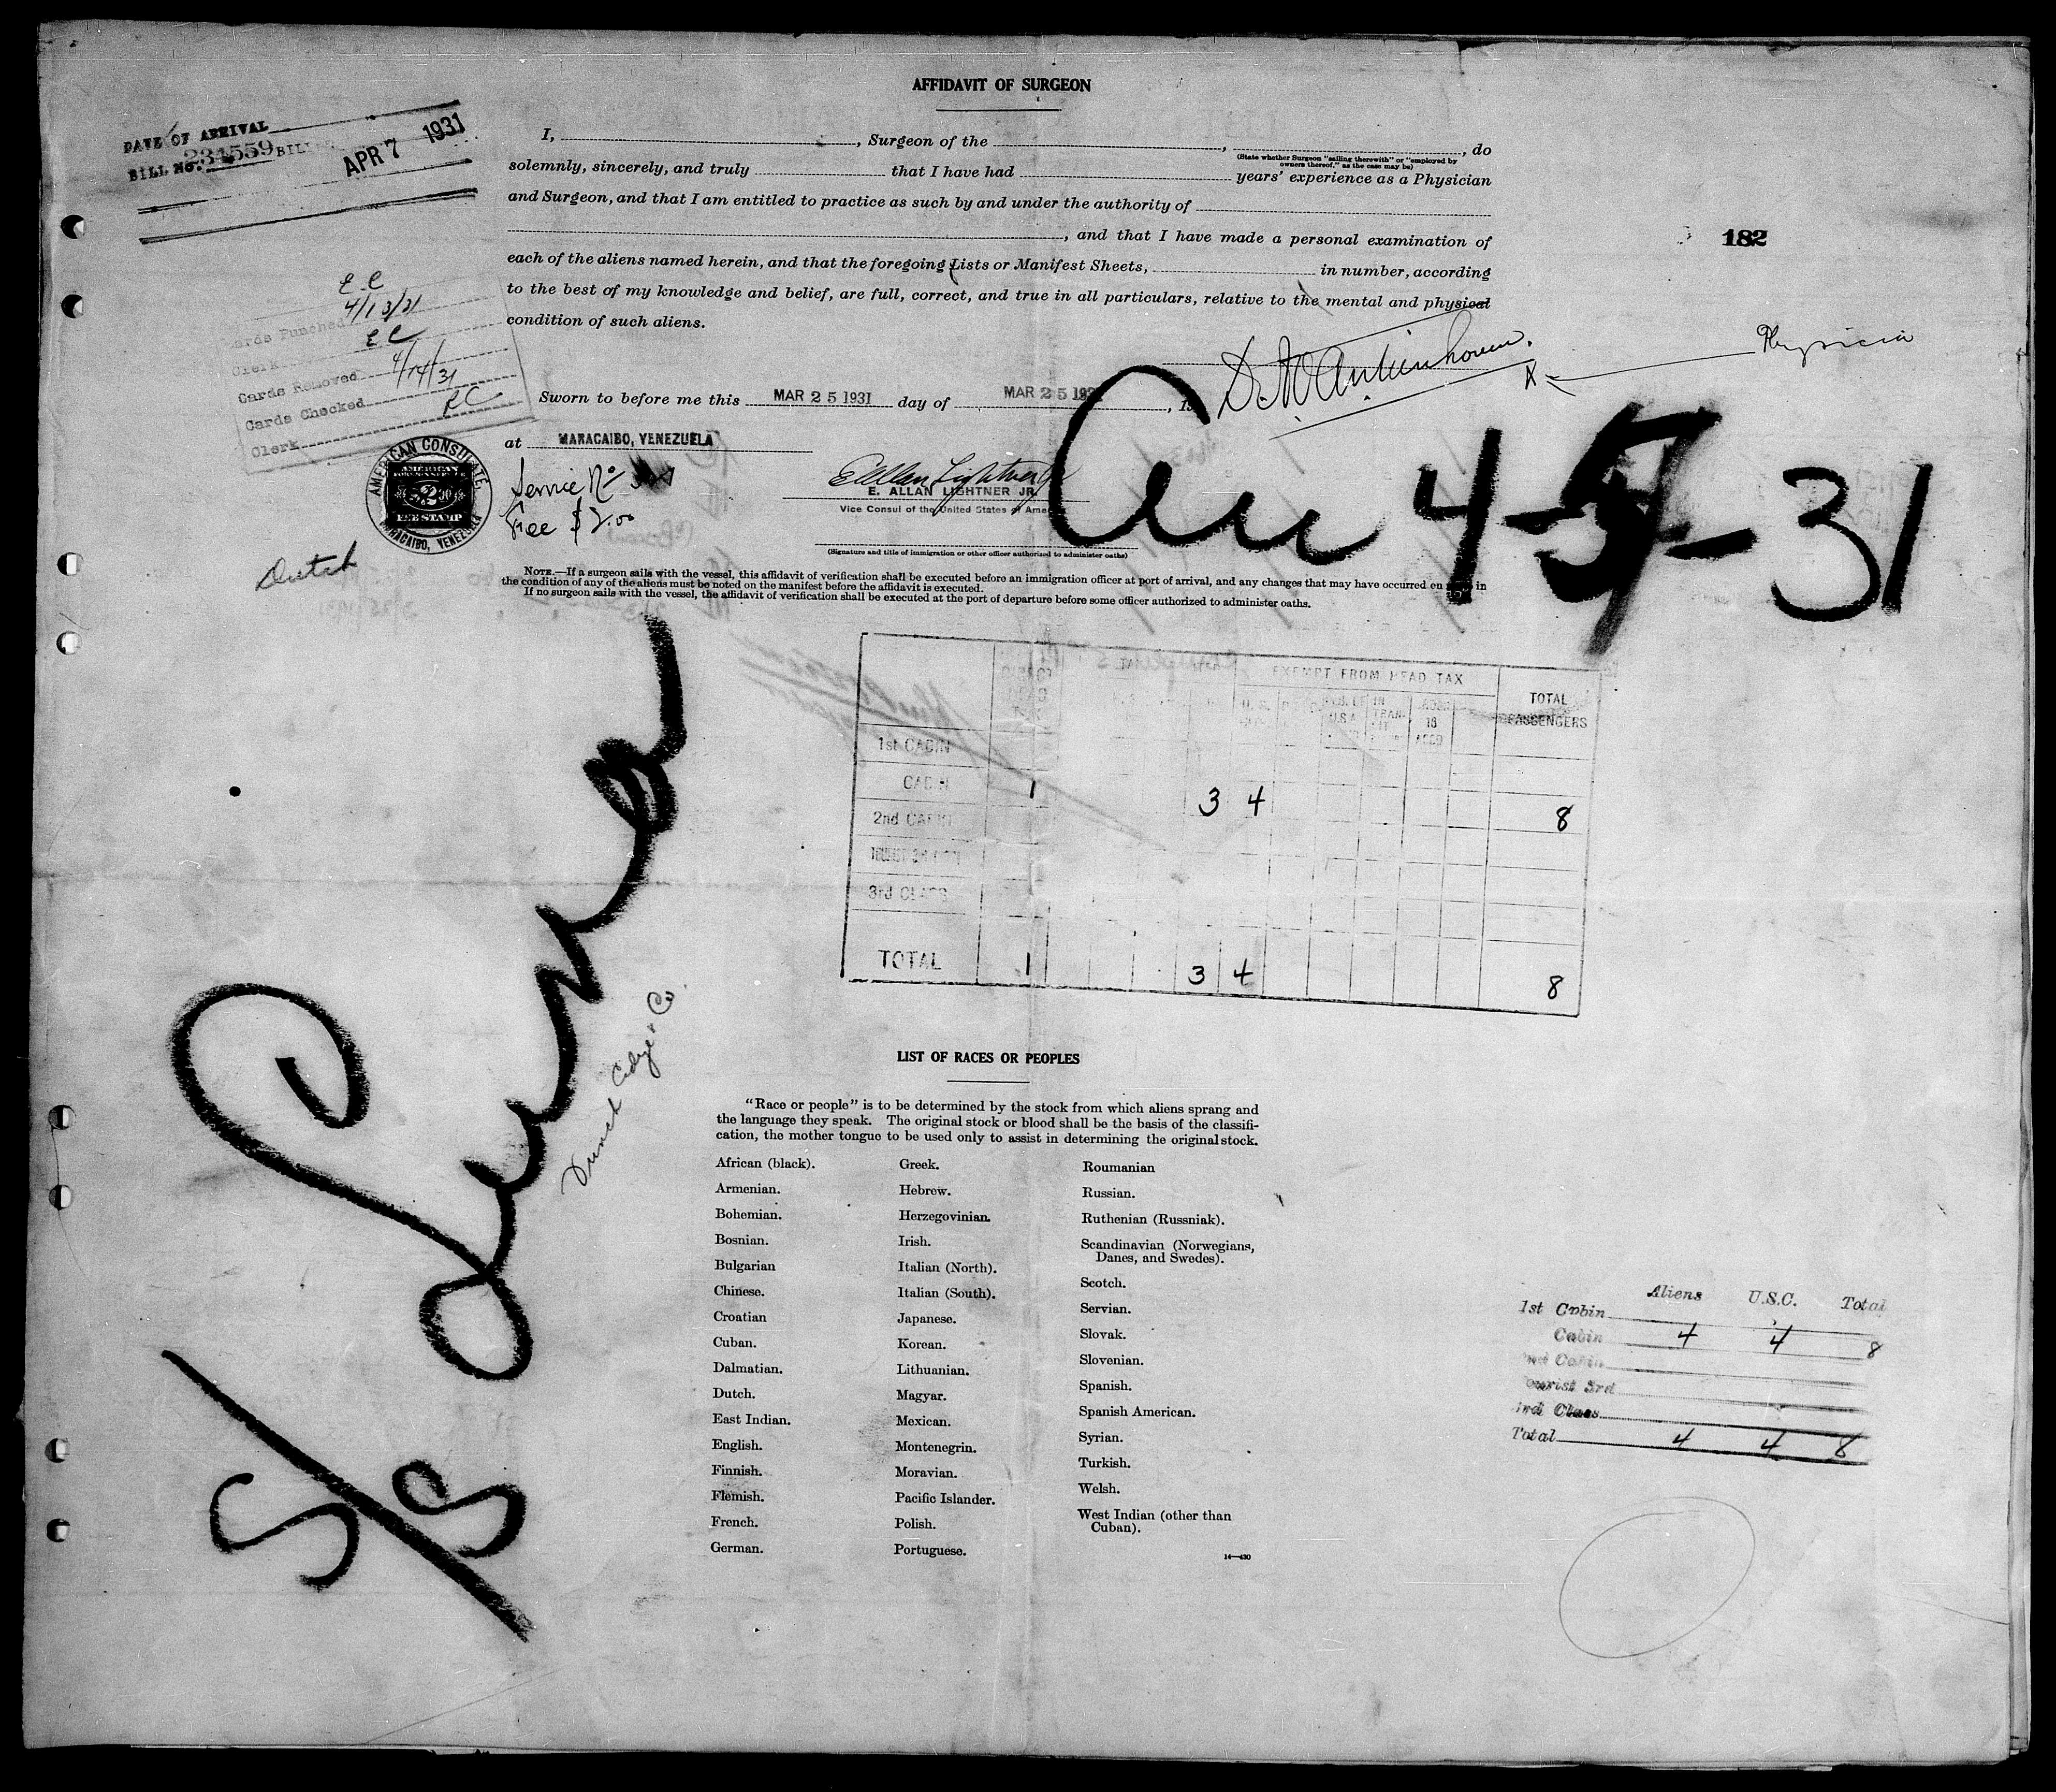 AFFIDAVIT OF SURGEON
DATE OF ARRIVAL
BILL NO. 234559
APR 7 1931
I, , Surgeon of the , , do
(State whether Surgeon "sailing therewith" or "employed by owners thereof," as the case may be)
solemnly, sincerely, and truly that I have had years' experience as a Physician
and Surgeon, and that I am entitled to practice as such by and under the authority of
, and that I have made a personal examination of
each of the aliens named herein, and that the foregoing Lists or Manifest Sheets, in number, according
to the best of my knowledge and belief, are full, correct, and true in all particulars, relative to the mental and physical
condition of such aliens.
182
E.C
4/13/31
Cards Punched
Clerk EC
Cards Removed 4/14/31
Cards Checked
Clerk
Physicia
Sworn to before me this MAR 25 1931 day of MAR 25 193 , 19
at MARACAIBO, VENEZUELA
AMERICAN CONSULATE,
MARACAIBO, VENEZUELA
AMERICAN
FEE STAMP
Service No
Fee $2.00
E Allan Lightner Jr
E. ALLAN LIGHTNER JR.
Vice Consul of the United States of Ame
(Signature and title of immigration or other officer authorized to administer oaths)
Arr 4-5-31
Dutch
NOTE.—If a surgeon sails with the vessel, this affidavit of verification shall be executed before an immigration officer at port of arrival, and any changes that may have occurred en in
the condition of any of the aliens must be noted on the manifest before the affidavit is executed.
If no surgeon sails with the vessel, the affidavit of verification shall be executed at the port of departure before some officer authorized to administer oaths.
EXEMPT FROM HEAD TAX
TOTAL PASSENGERS
U.S. IN TRAN-SIT 16
1st CABIN
CABIN 1 3 4 8
2nd CABIN
3rd CLASS
TOTAL 1 3 4 8
S/S
LIST OF RACES OR PEOPLES
"Race or people" is to be determined by the stock from which aliens sprang and
the language they speak. The original stock or blood shall be the basis of the classifi-
cation, the mother tongue to be used only to assist in determining the original stock.
African (black).
Armenian.
Bohemian.
Bosnian.
Bulgarian
Chinese.
Croatian
Cuban.
Dalmatian.
Dutch.
East Indian.
English.
Finnish.
Flemish.
French.
German.
Greek.
Hebrew.
Herzegovinian.
Irish.
Italian (North).
Italian (South).
Japanese.
Korean.
Lithuanian.
Magyar.
Mexican.
Montenegrin.
Moravian.
Pacific Islander.
Polish.
Portuguese.
Roumanian
Russian.
Ruthenian (Russniak).
Scandinavian (Norwegians,
Danes, and Swedes).
Scotch.
Servian.
Slovak.
Slovenian.
Spanish.
Spanish American.
Syrian.
Turkish.
Welsh.
West Indian (other than
Cuban).
14—430
Aliens U.S.C. Total
1st Cabin
Cabin 4 4 8
2nd Cabin
Tourist 3rd
3rd Class
Total 4 4 8